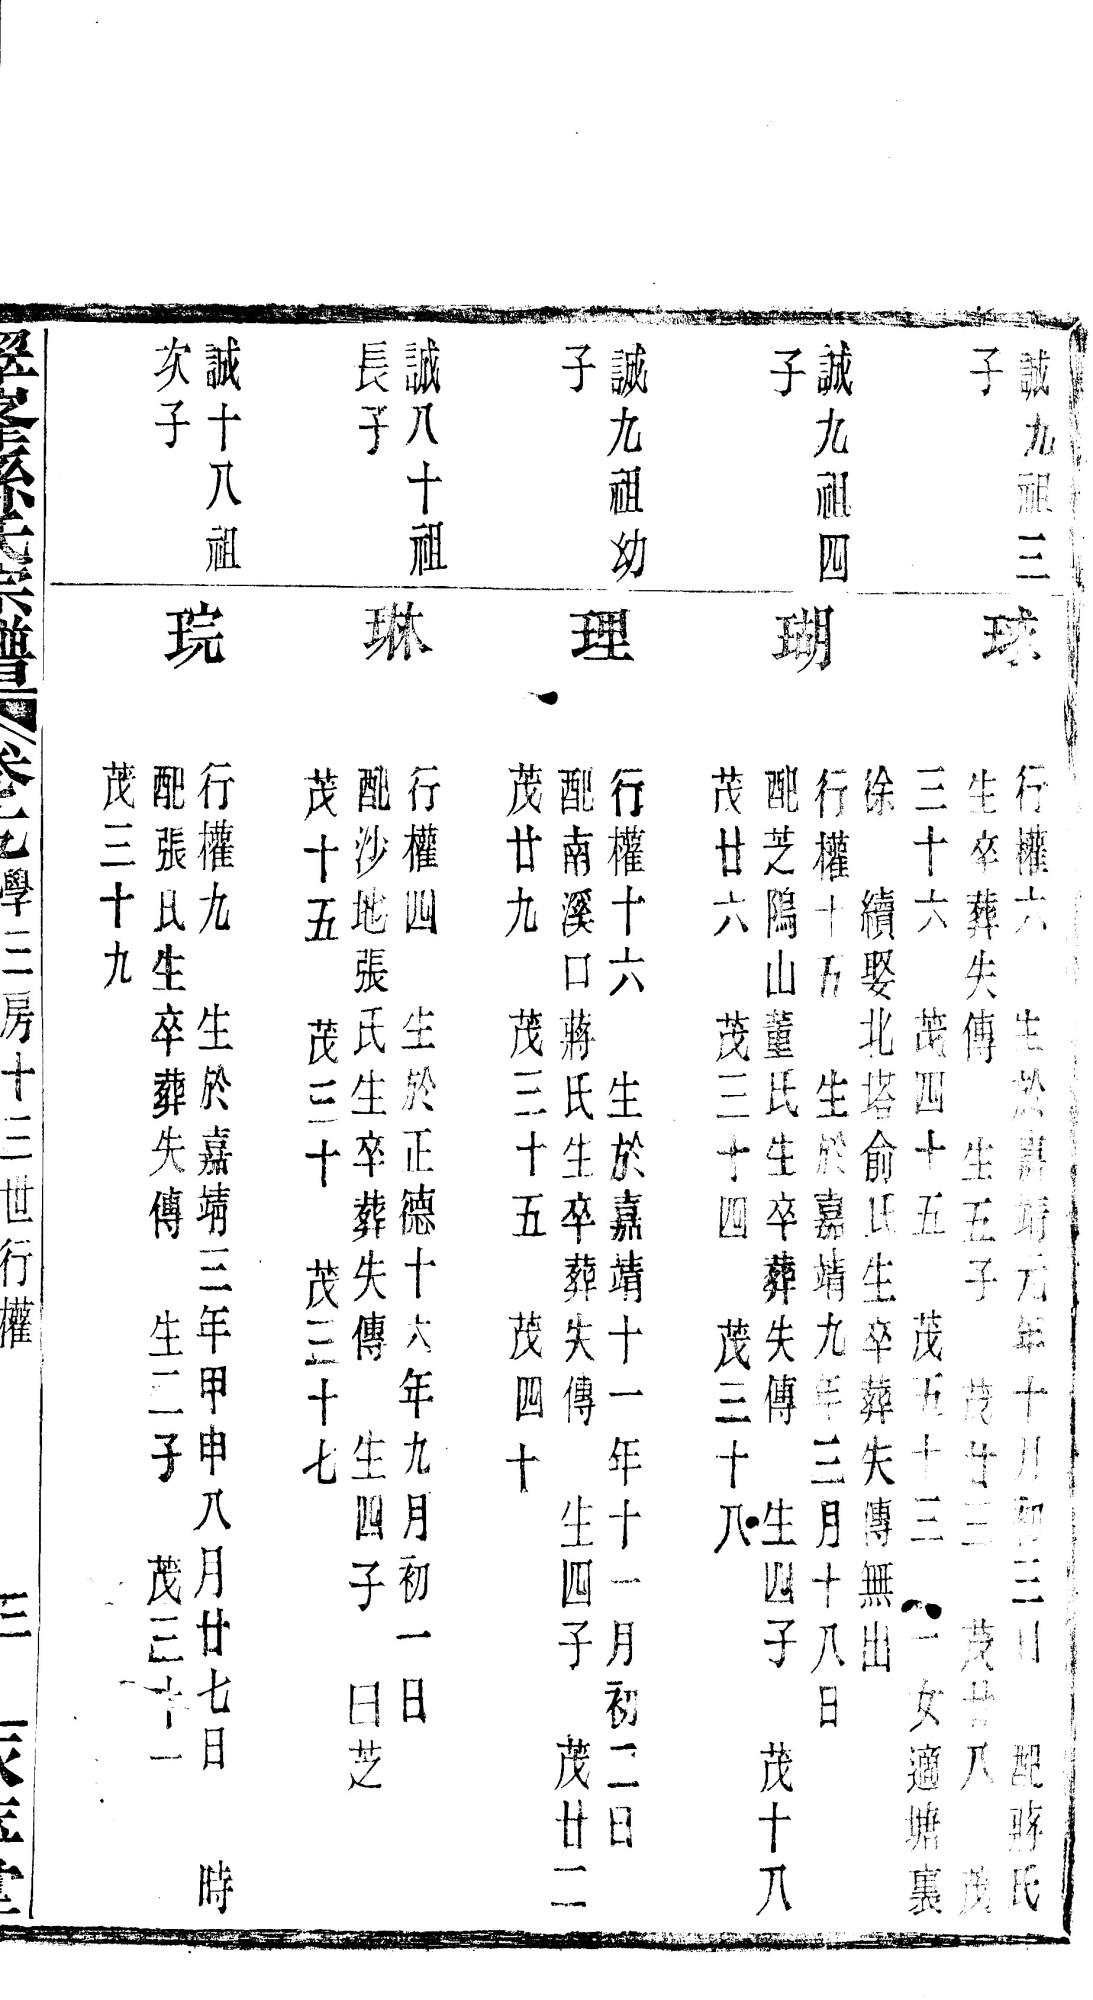 誠九祖三
子
球
行權六 生於嘉靖元年十月初三日 配蔣氏
生卒葬失傳 生五子 茂廿三 茂廿八 茂
三十六 茂四十五 茂五十三 一女適塘裏
徐 續娶北塔俞氏生卒葬失傳無出
誠九祖四
子
瑚
行權十五 生於嘉靖九年三月十八日
配芝隖山董氏生卒葬失傳 生四子 茂十八
茂廿六 茂三十四 茂三十八
誠九祖幼
子
理
行權十六 生於嘉靖十一年十一月初二日
配南溪口蔣氏生卒葬失傳 生四子 茂廿二
茂廿九 茂三十五 茂四十
誠八十祖
長子
琳
行權四 生於正德十六年九月初一日
配沙地張氏生卒葬失傳 生四子 曰芝
茂十五 茂三十 茂三十七
誠十八祖
次子
琓
行權九 生於嘉靖三年甲申八月廿七日 時
配張氏生卒葬失傳 生二子 茂三十一
茂三十九
孫氏宗譜 卷之九學三房十三世行權 三